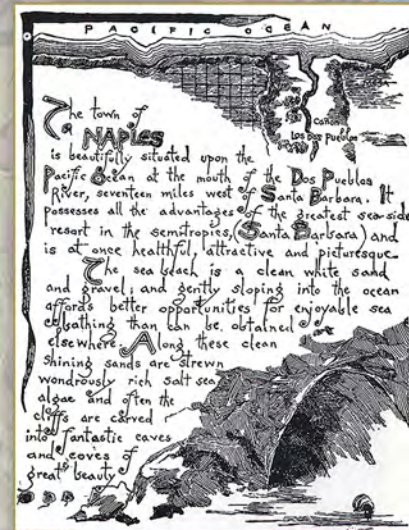 PACIFIC OCEAN
MESA
CAÑON
LOS DOS PUEBLOS
The town of
NAPLES
is beautifully situated upon the
Pacific Ocean at the mouth of the Dos Pueblos
River, seventeen miles west of Santa Barbara. It
possesses all the advantages of the greatest sea-side
resort in the semitropics, (Santa Barbara) and
is at once healthful, attractive and picturesque.
The sea beach is a clean white sand
and gravel; and gently sloping into the ocean
affords better opportunities for enjoyable sea
bathing than can be obtained
elsewhere. Along these clean
shining sands are strewn
wondrously rich salt sea
algae and often the
cliffs are carved
into fantastic caves
and coves of
great beauty